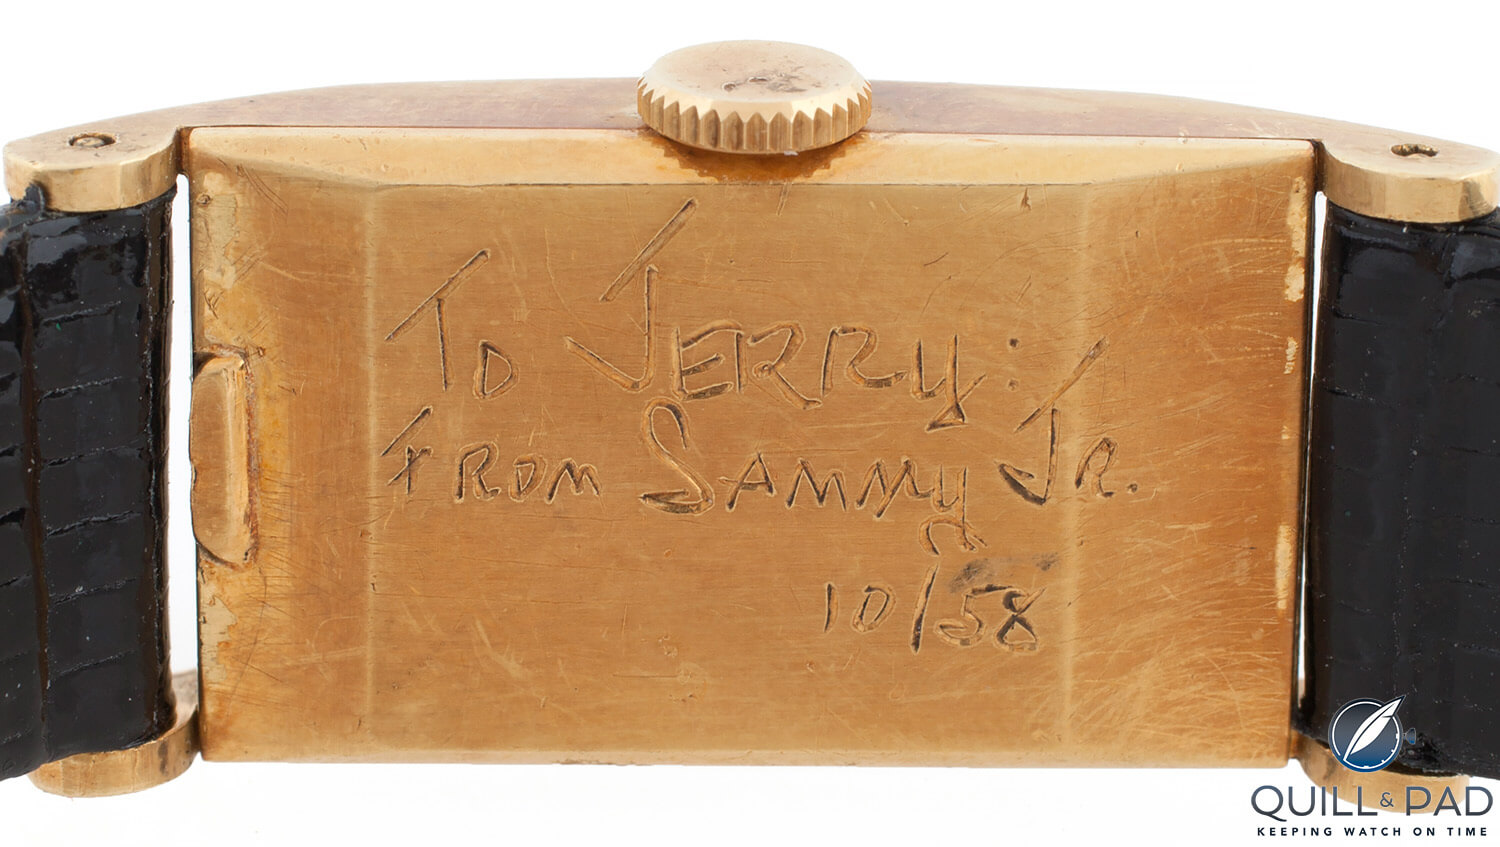 To JERRy:
FROM SAMMy JR.
10/58
QUILL & PAD
KEEPING WATCH ON TIME